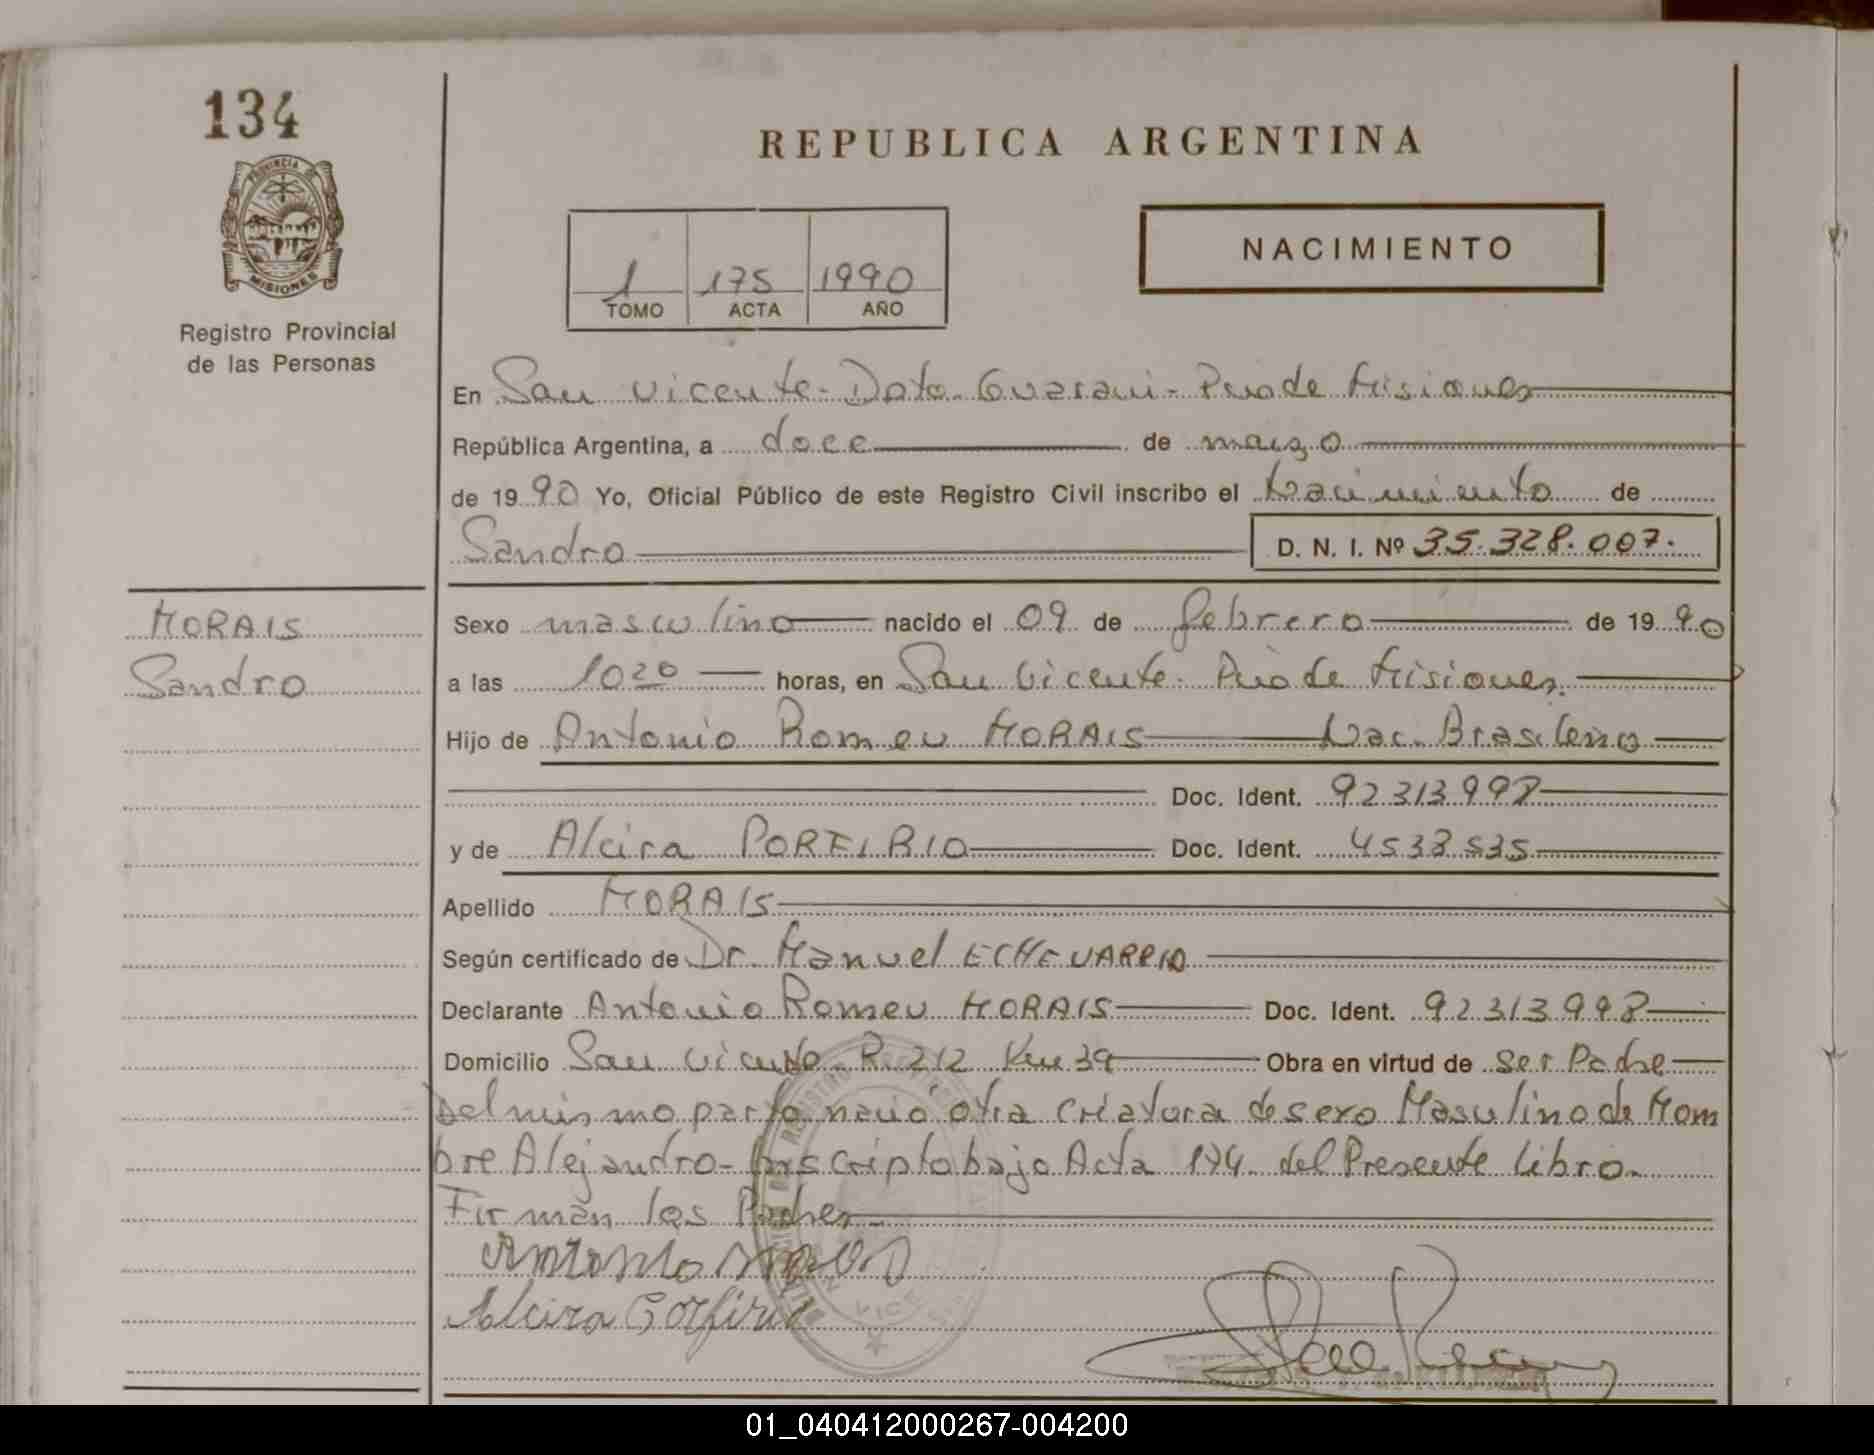 134
PROVINCIA DE
MISIONES
Registro Provincial
de las Personas
REPUBLICA ARGENTINA
1 175 1990
TOMO ACTA AÑO
NACIMIENTO
En San Vicente - Dpto. Guarani - Pcia de Misiones
República Argentina, a doce de marzo
de 1990 Yo, Oficial Público de este Registro Civil inscribo el Nacimiento de
Sandro D. N. I. Nº 35.328.007.
MORAIS
Sandro
Sexo masculino nacido el 09 de febrero de 1990
a las 10 20 horas, en San Vicente. Pcia de Misiones.
Hijo de Antonio Romeu MORAIS Nac. Brasileno
Doc. Ident. 92313998
y de Alcira PORFIRIO Doc. Ident. 4533535
Apellido MORAIS
Según certificado de Dr. Manuel ECHEVARRIA
Declarante Antonio Romeu MORAIS Doc. Ident. 92313998
Domicilio San Vicente. R. 212 Km 39 Obra en virtud de ser Padre
Del mismo parto nació otra criatura de sexo Masculino de Nom
bre Alejandro - Inscripto bajo Acta 174. del Presente libro.
Firman los Padres
Antonio
Alcira Porfirio
01_040412000267-004200